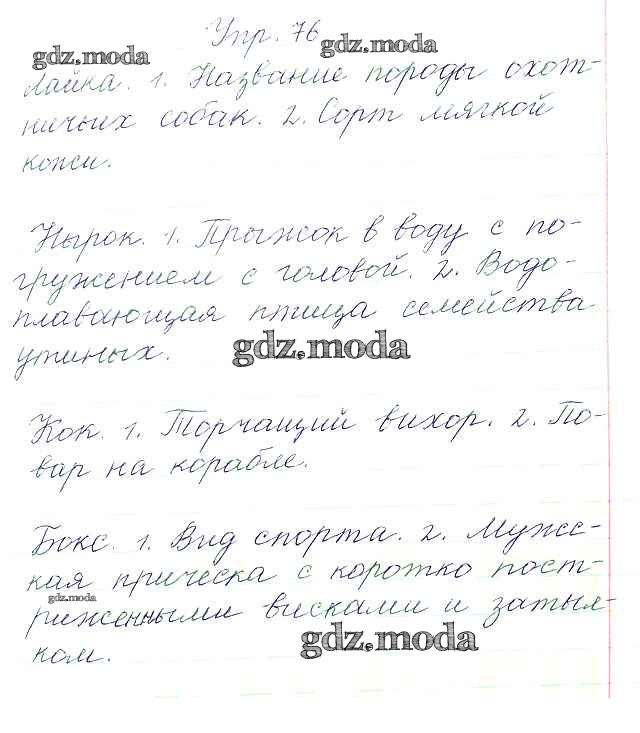 Упр. 76
gdz.moda
gdz.moda
Лайка. 1. Название породы охот-
ничьих собак. 2. Сорт мягкой
кожи.
Нырок. 1. Прыжок в воду с по-
гружением с головой. 2. Водо-
плавающая птица семейства
утиных.
gdz.moda
Кок. 1. Торчащий вихор. 2. По-
вар на корабле.
Бокс. 1. Вид спорта. 2. Мужс-
кая прическа с коротко пост-
gdz.moda
риженными висками и затыл-
ком.
gdz.moda